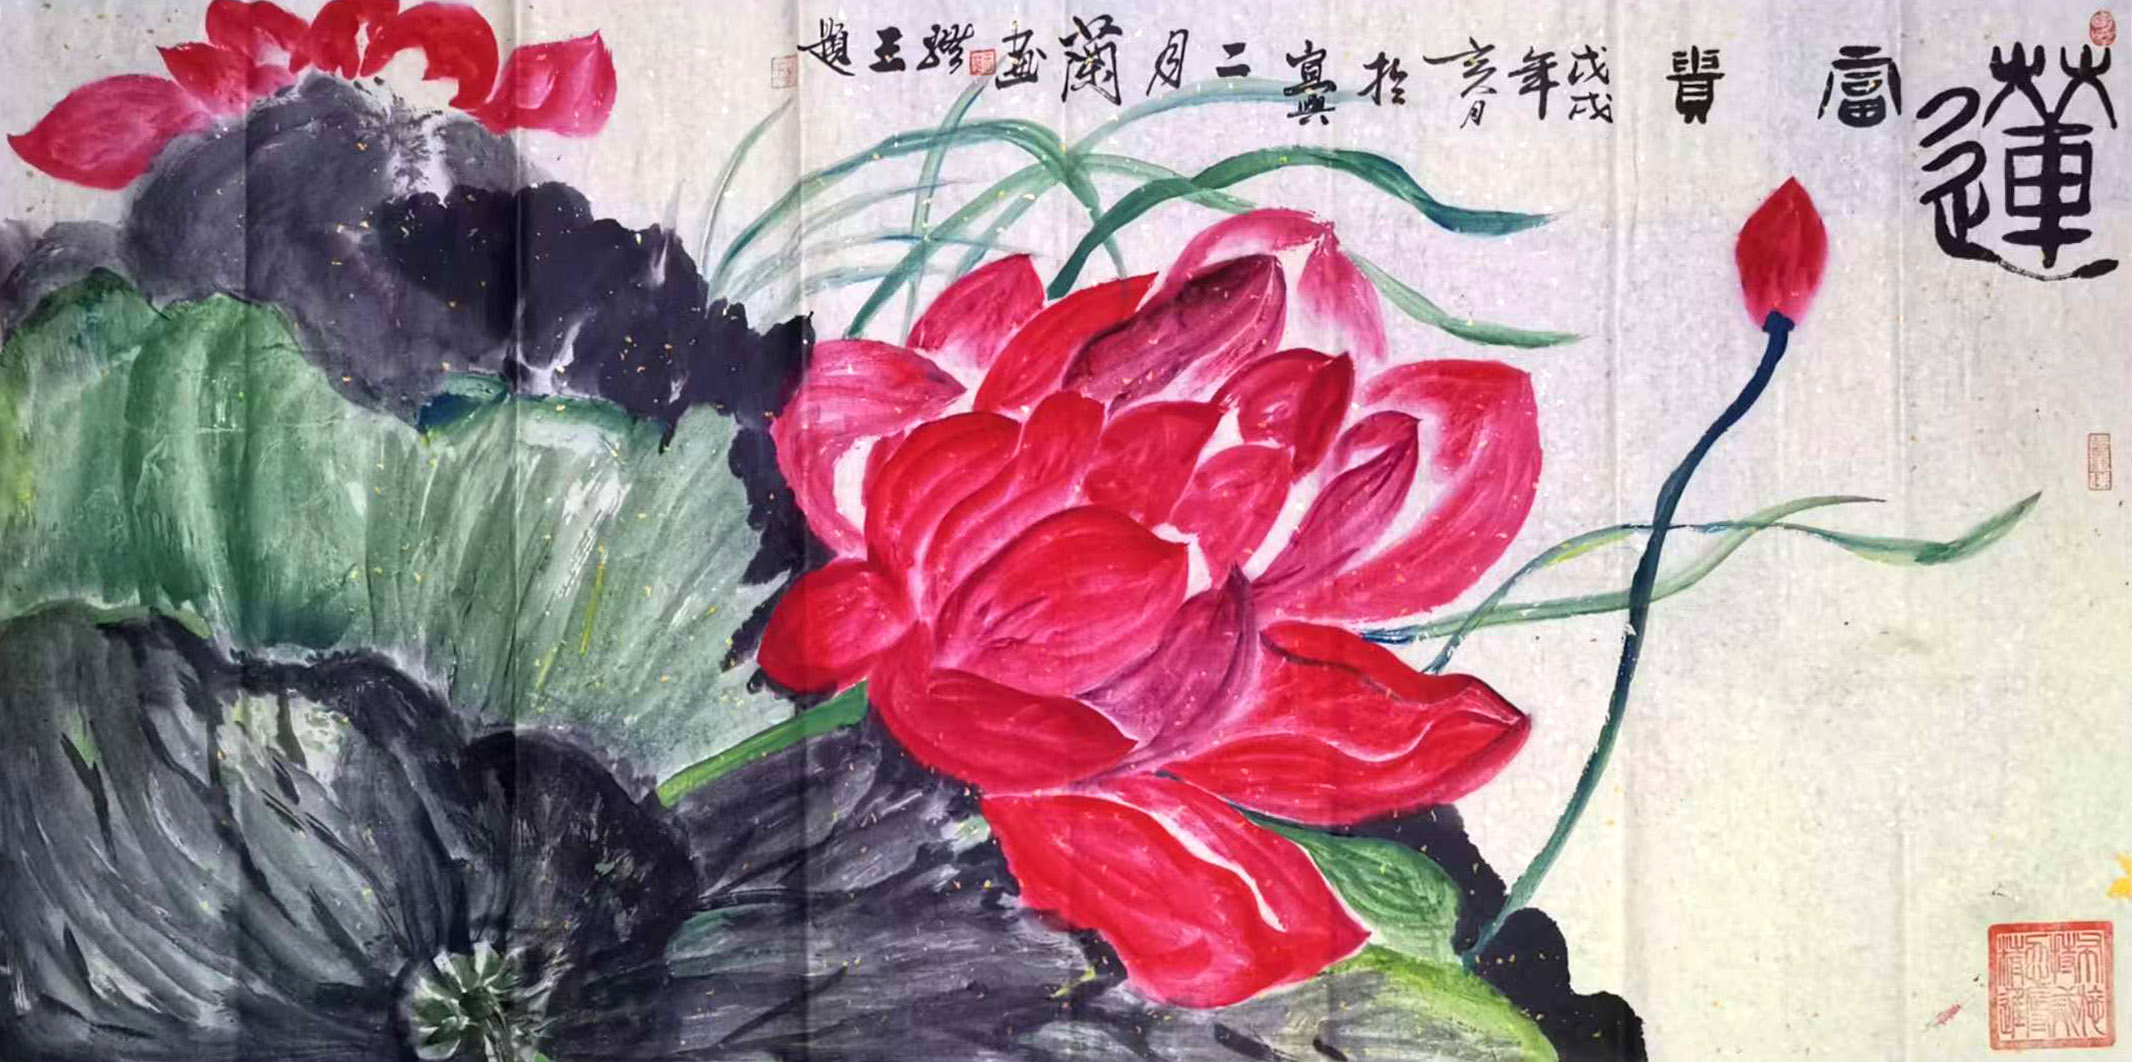 蓮富貴
戊戌年亥月於宜興二月蘭畫
玉題